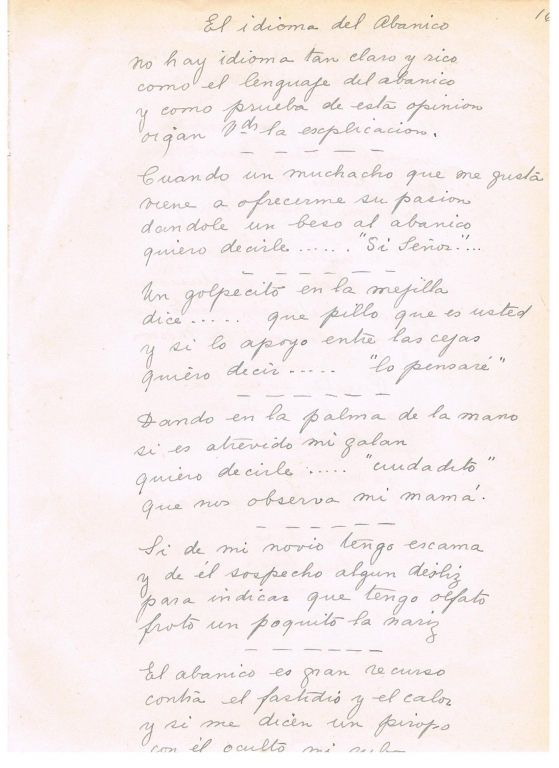 16
El idioma del Abanico
no hay idioma tan claro y rico
como el lenguaje del abanico
y como prueba de esta opinion
oigan Vds la esplicacion.
Cuando un muchacho que me gusta
viene a ofrecerme su pasion
dandole un beso al abanico
quiero decirle...... "Si Señor"...
Un golpecito en la mejilla
dice..... que pillo que es usted
y si lo apoyo entre las cejas
quiero decir..... "lo pensaré"
Dando en la palma de la mano
si es atrevido mi galan
quiero decirle..... "cuidadito"
que nos observa mi mamá.
Si de mi novio tengo escama
y de él sospecho algun desliz
para indicar que tengo olfato
froto un poquito la nariz
El abanico es gran recurso
contra el fastidio y el calor
y si me dicen un piropo
con él oculto mi